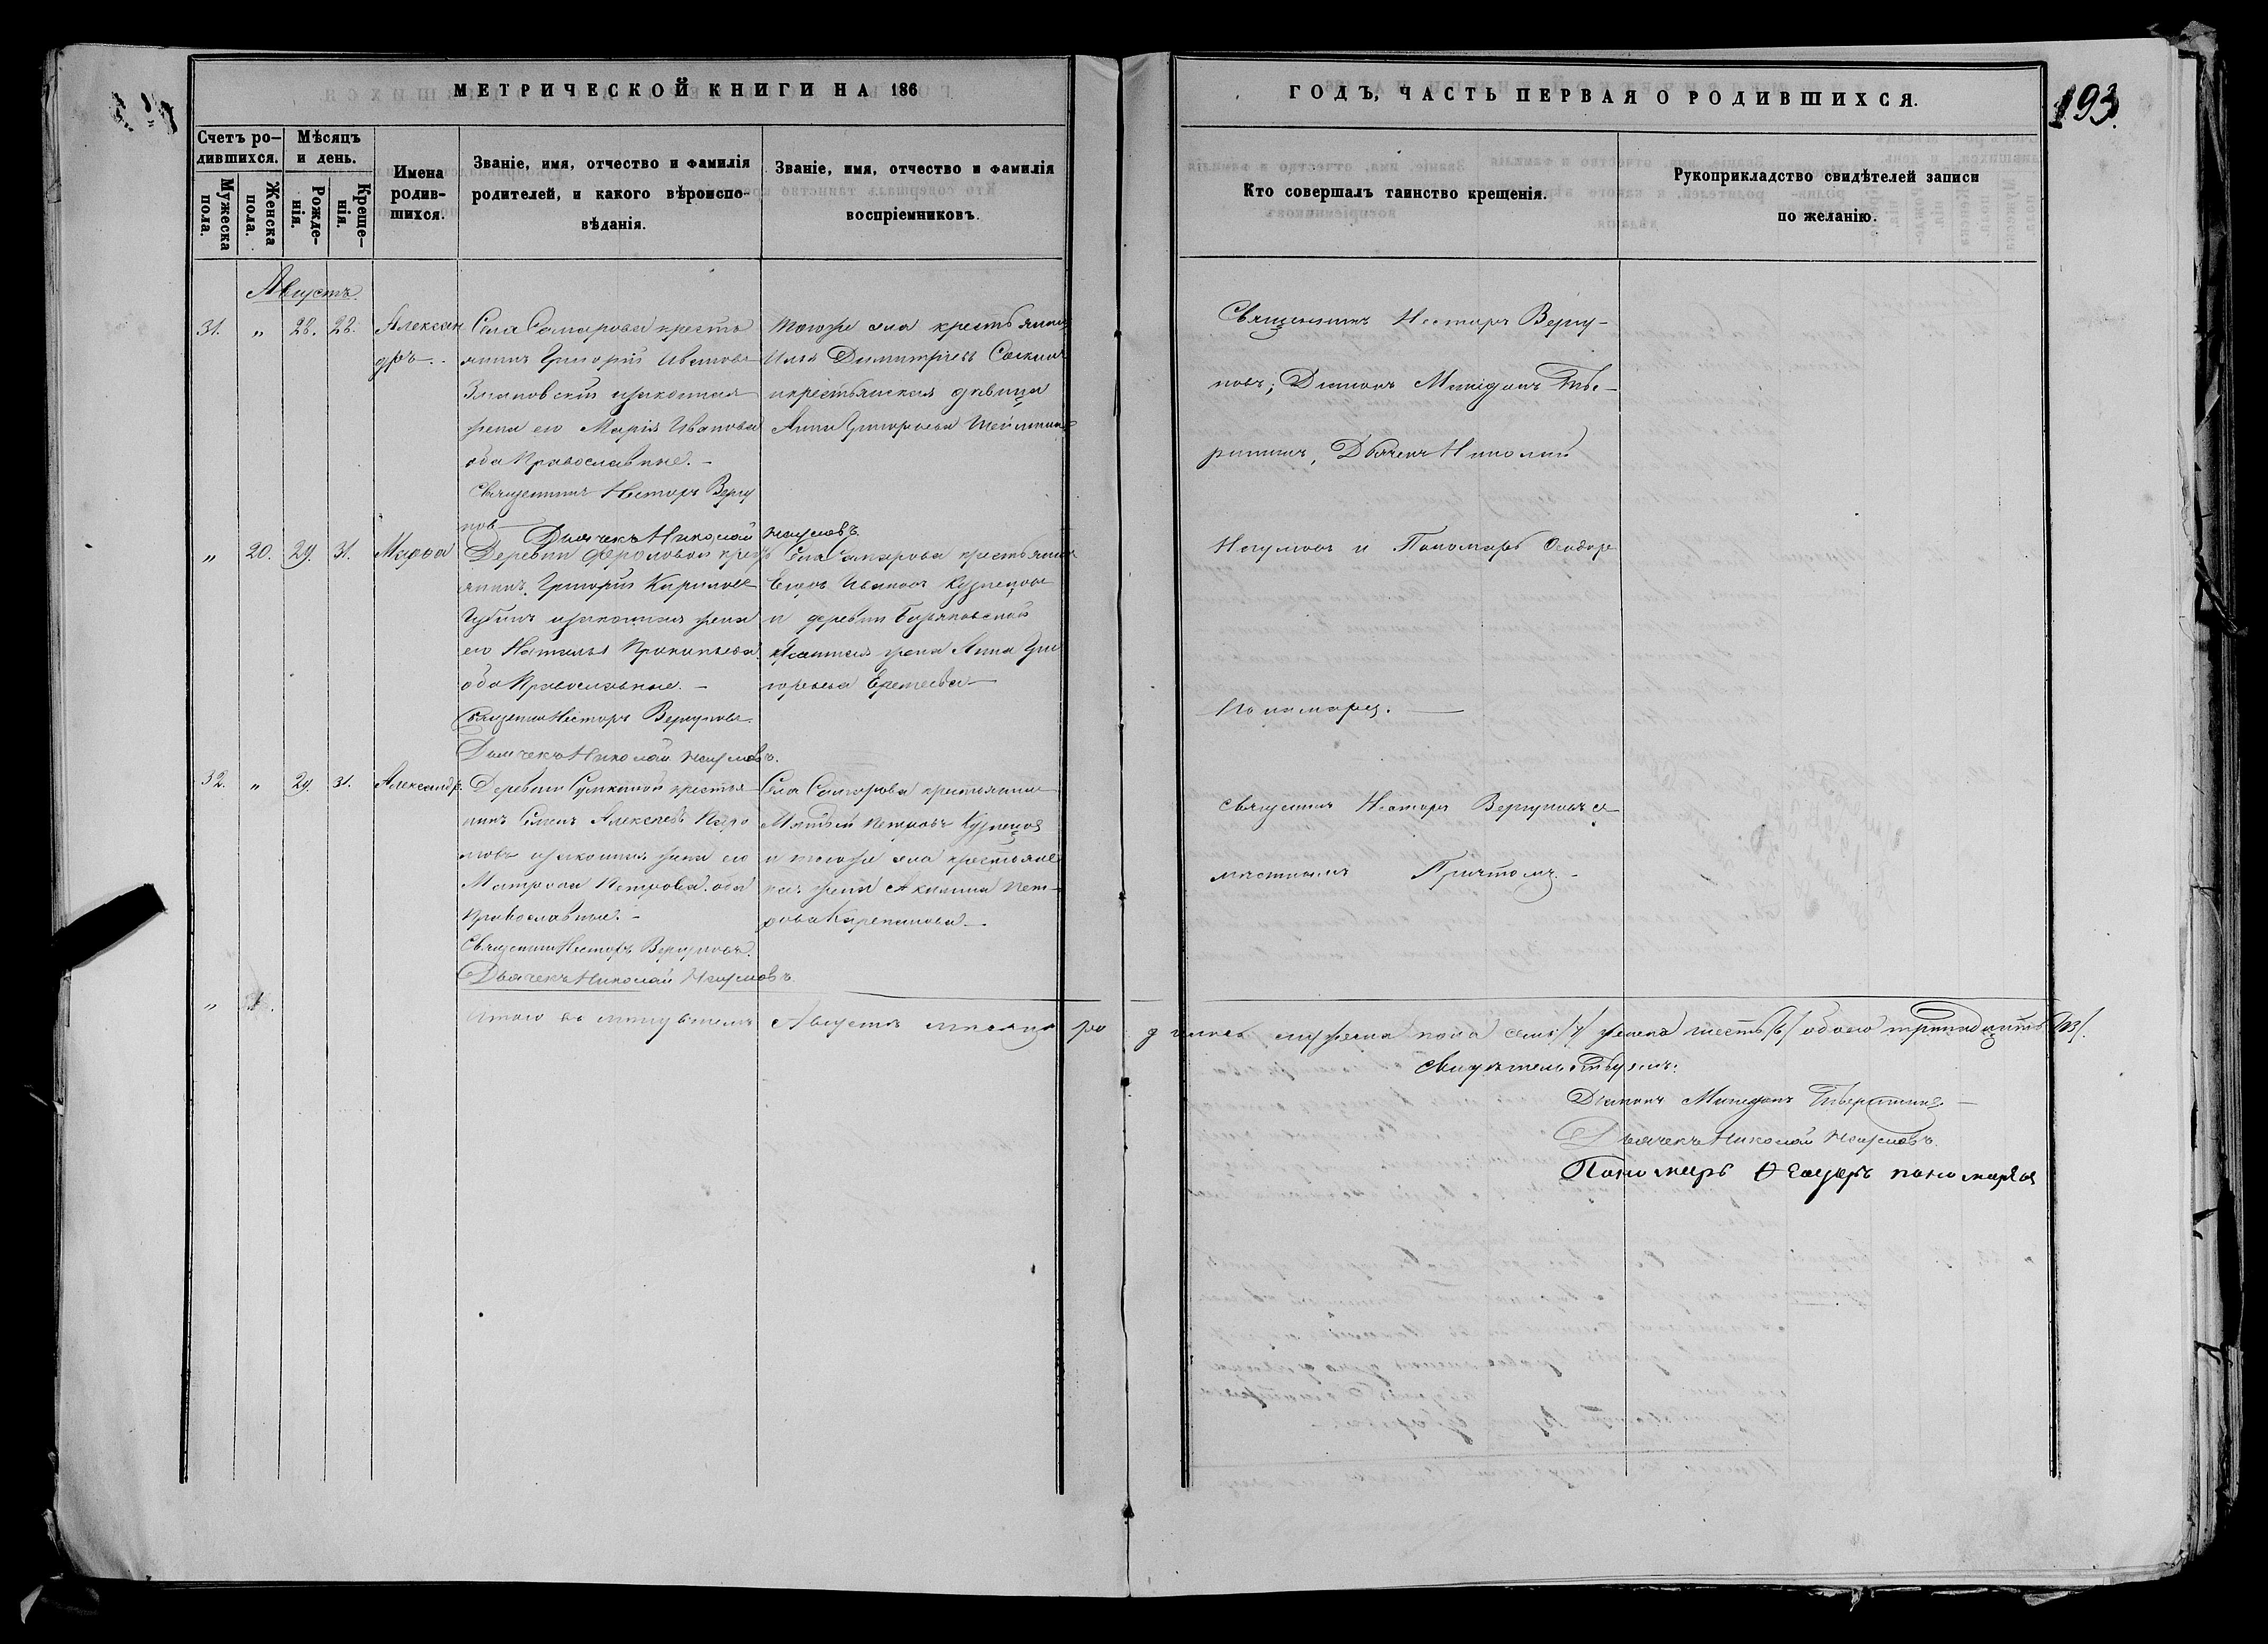 МЕТРИЧЕСКОЙ КНИГИ НА 186
ГОДЪ, ЧАСТЬ ПЕРВАЯ О РОДИВШИХСЯ.
193.
Счетъ ро-
дившихся.
Мѣсяцъ
и день.
Мужеска
пола.
Женска
пола.
Рожде-
нія.
Креще-
нія.
Имена
родив-
шихся.
Званіе, имя, отчество и фамилія
родителей, и какого вѣроиспо-
вѣданія.
Званіе, имя, отчество и фамилія
воспріемниковъ.
Кто совершалъ таинство крещенія.
Рукоприкладство свидѣтелей записи
по желанію.
Августъ.
31. " 28. 28.
Алексан
дръ.
Села Самарова кресть
янинъ Григорій Ивановъ
Земановскій изаконная
жена его Марія Иванова
оба Православные.
Священникъ Несторъ Вергу
новъ
Дьячекъ Николай Наумовъ
Тогоже села крестьянинъ
Илья Димитріевъ Соскинъ
икрестьянская дѣвица
Анна Григорьева
Священникъ Несторъ Вергу-
новъ; Діаконъ Македонъ Тве-
ритинъ, Дьячекъ Николай
Наумовъ и Пономарь Ѳеодоръ
Пономаревъ.
" 20. 29. 31.
Марѳа
Деревни Фроловой крест
янинъ Григорій Кириловъ
Чубинъ изаконная жена
его Наталья Прокопьева
оба Православные.
Священникъ Несторъ Вергуновъ.
Дьячекъ Николай Наумовъ.
Села Самарова крестьянинъ
Егоръ Ивановъ Кузнецовъ
и деревни Базьяновской
жена Анна Гри
горьева Еремеева
32. " 29. 31.
Александръ.
Деревни Сумкиной крестья
нинъ Семенъ Алексѣевъ
изаконная жена его
Матрона Петрова. оба
Православные.
Священникъ Несторъ Вергуновъ.
Дьячекъ Николай Наумовъ
Села Самарова крестьянинъ
Матвѣй Петровъ Кузнецовъ
и тогоже села крестьянс
кая жена Акилина Пет-
рова Карепанова.
Священникъ Несторъ Вергуновъ съ
мѣстнымъ Причтомъ.
Итого въ минувшемъ Августѣ мѣсяцѣ родилось мужеска пола семь /7/ женска шесть /6/ обоего тринадцать /13/.
Свидѣтельствуемъ:
Діаконъ Македонъ Тверитинъ
Дьячекъ Николай Наумовъ.
Пономарь Ѳеодоръ пономаревъ